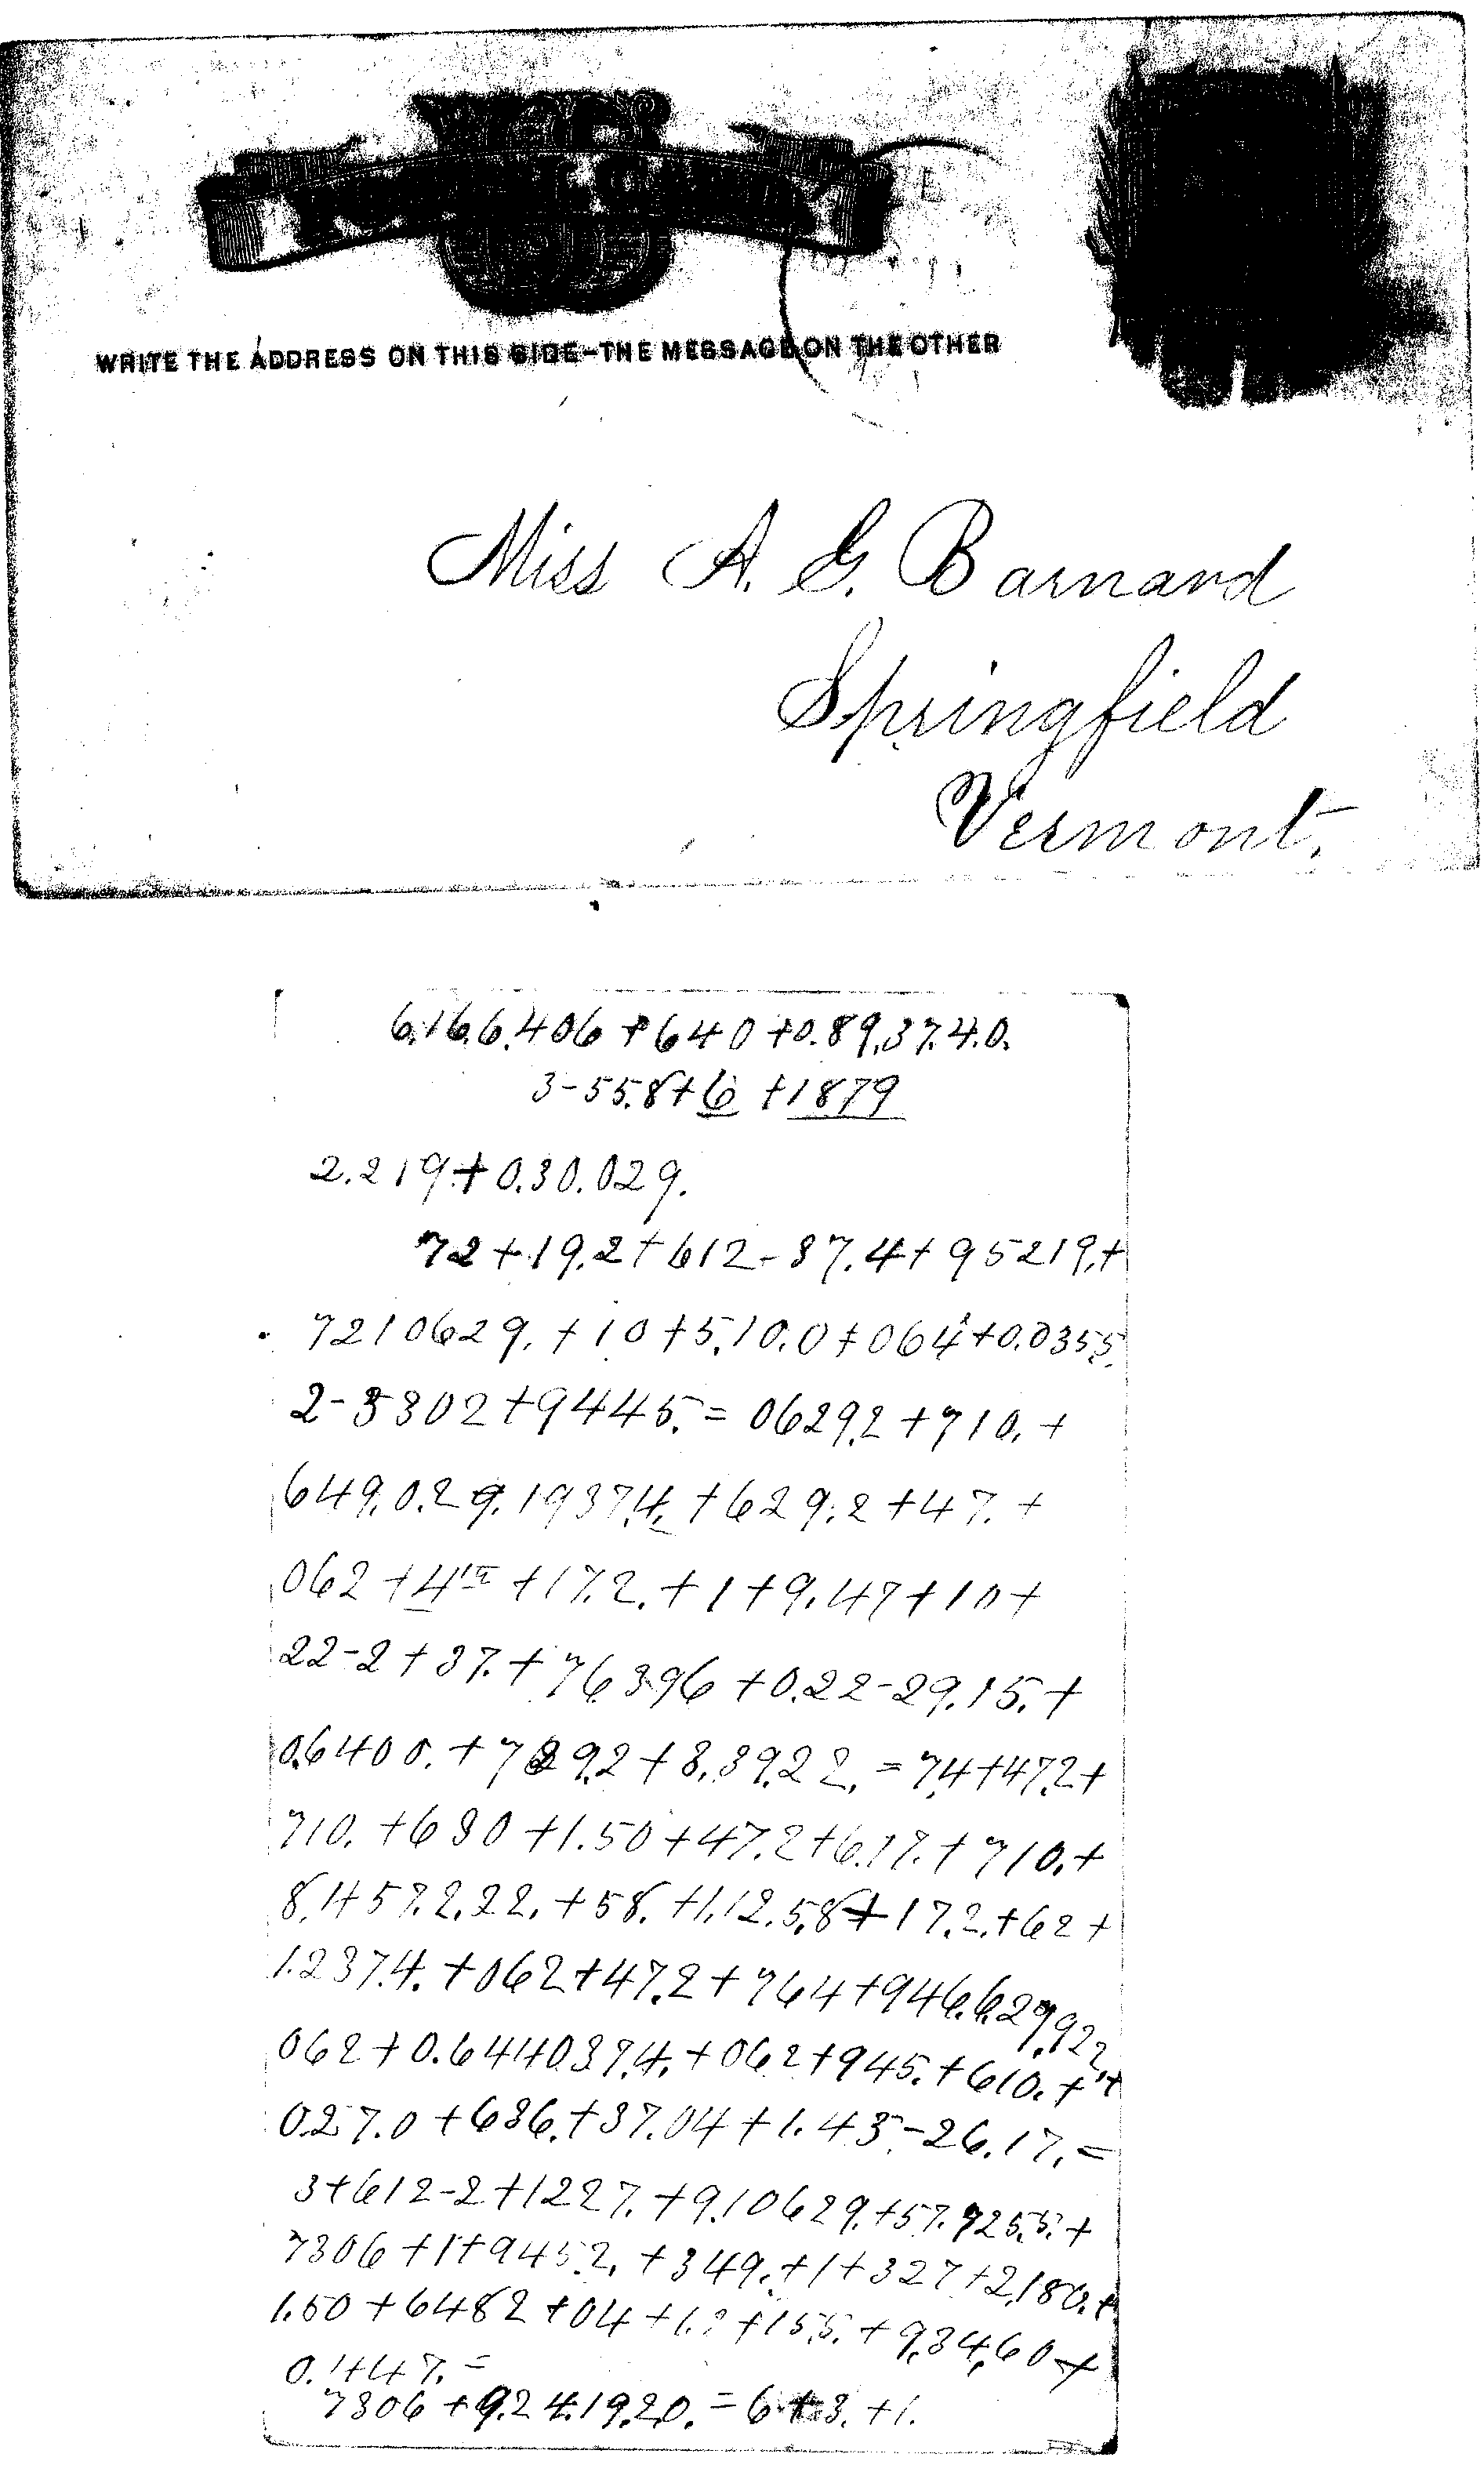 POSTAL CARD
WRITE THE ADDRESS ON THIS SIDE-THE MESSAGE ON THE OTHER
Miss A. G. Barnard
Springfield
Vermont.
6.16.6.406 + 640 + 0.89.37.4.0.
3-55.8+6 +1879
2.219.+0.30.029.
72+19.2+612-37.4+95219.+
7210629.+10+5.10.0+064+0.0355.
2-3302+9445.=06292+710.+
649.0.29.1937.4.+629.2+47.+
062+4 +17.2.+1+9.47+10+
22-2+37.+76396+0.22-29.15.+
0.6400.+7 9.2+8.39.22.=7.4+47.2+
710.+630+1.50+47.2+6.17.+710.+
8.1457.2.22.+58.+1.12.5.8+17.2.+62+
1.237.4.+062+47.2+764+946.6.29.922.+
062+0.6440.37.4.+062+945.+610.+
0.27.0+636.+37.04+1.43-26.17.=
3+612-2+1227.+9.10629.+57.925.5.+
7306+1+9452.+349.+1+327+2.180.+
1.50+6482+04+1.2+15.5.+9.34.60+
0.1+47.=
7306+9.24.19.20.=6+3.+1.